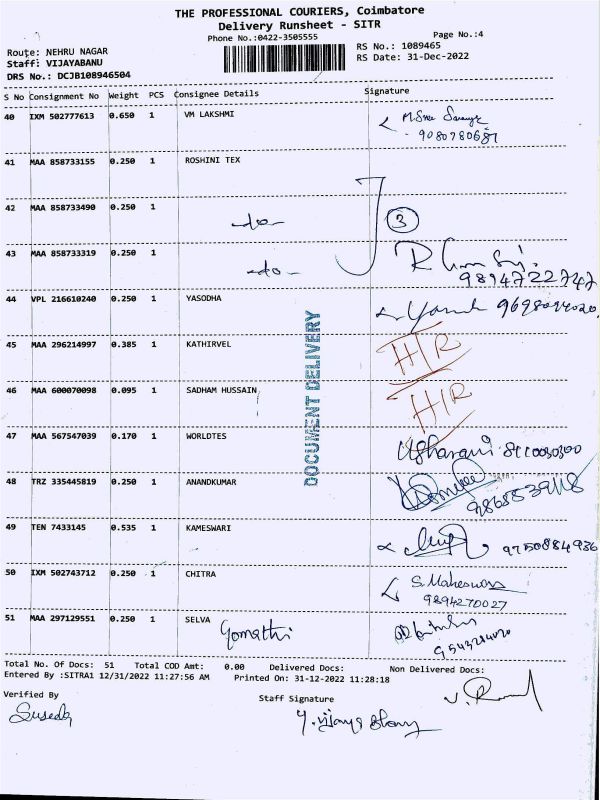 THE PROFESSIONAL COURIERS, Coimbatore
Delivery Runsheet - SITR
Phone No.:0422-3505555
Page No.:4
Route: NEHRU NAGAR
RS No.: 1089465
Staff: VIJAYABANU
RS Date: 31-Dec-2022
DRS No.: DCJB108946504
S No Consignment No Weight PCS Consignee Details Signature
40 IXM 502777613 0.650 1 VM LAKSHMI
9080780687
41 MAA 858733155 0.250 1 ROSHINI TEX
42 MAA 858733490 0.250 1 -do- 3
43 MAA 858733319 0.250 1 -do-
9894722747
44 VPL 216610240 0.250 1 YASODHA
45 MAA 296214997 0.385 1 KATHIRVEL H/R
46 MAA 600070098 0.095 1 SADHAM HUSSAIN H/R
DOCUMENT DELIVERY
47 MAA 567547039 0.170 1 WORLDTES
48 TRZ 335445819 0.250 1 ANANDKUMAR
49 TEN 7433145 0.535 1 KAMESWARI
9750884936
50 IXM 502743712 0.250 1 CHITRA S. Maheswari
9894270027
51 MAA 297129551 0.250 1 SELVA Gomathi
Total No. Of Docs: 51 Total COD Amt: 0.00 Delivered Docs: Non Delivered Docs:
Entered By :SITRA1 12/31/2022 11:27:56 AM Printed On: 31-12-2022 11:28:18
Verified By
Staff Signature